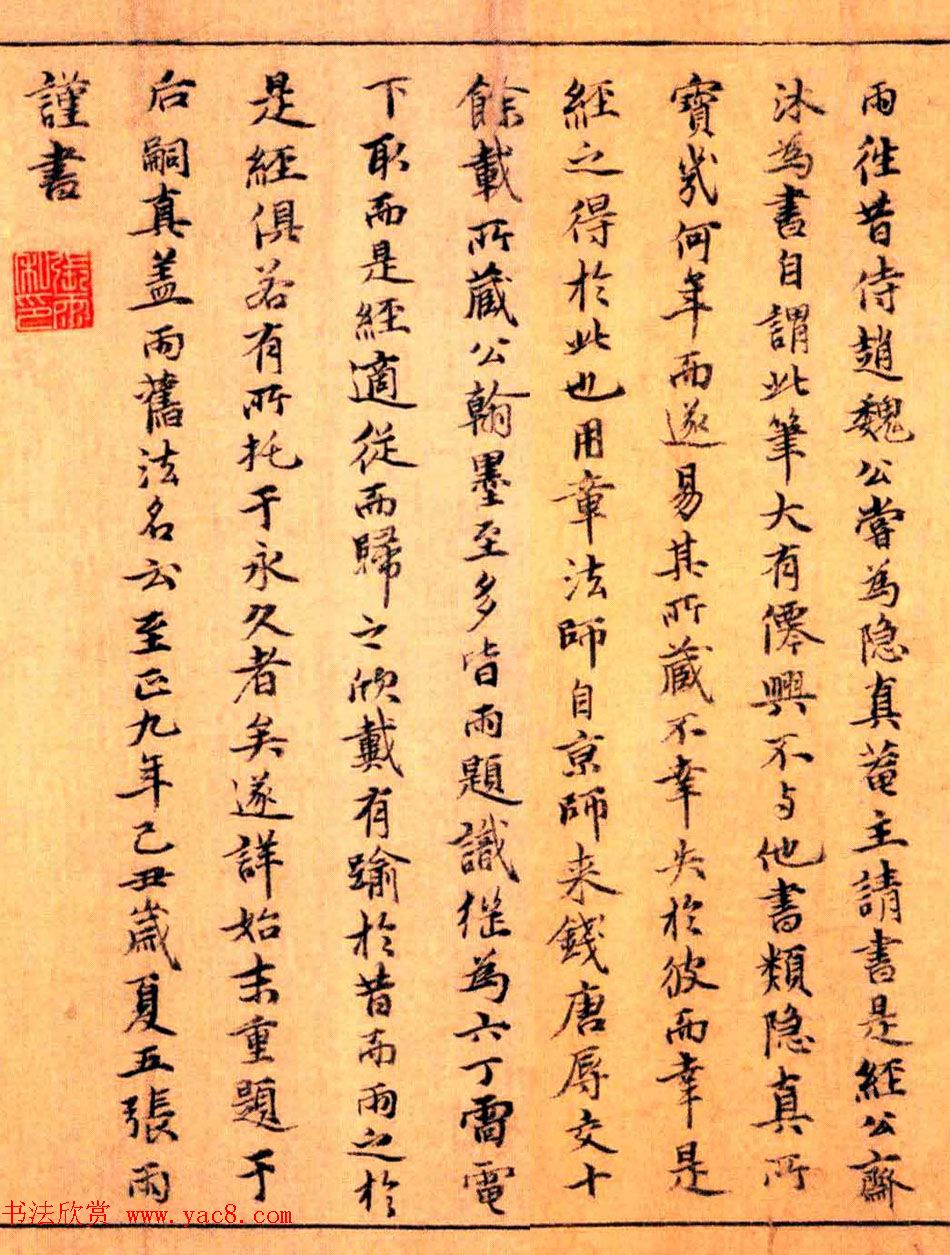 雨往昔侍趙魏公嘗為隐真菴主請書是經公齋
沐為書自謂此筆大有僊興不与他書類隐真所
寶岁何年而遂易其所蔵不幸失於彼而幸是
經之得於此也用章法師自京師来錢唐辱交十
餘載所蔵公翰墨至多皆雨題識從為六丁雷電
下取而是經適從而歸之欣戴有踰於昔而雨之於
是經俱若有所托于永久者矣遂詳始末重題于
后嗣真盖雨舊法名云至正九年己丑歲夏五張雨
謹書
張雨私印
书法欣赏 www.yac8.com